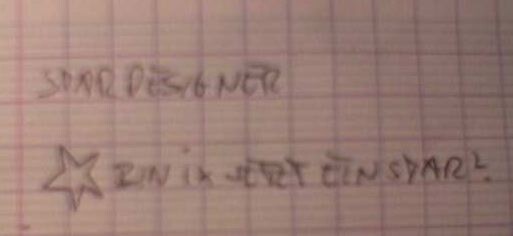 STAR DESIGNER
BIN ix JETZT EIN STAR?